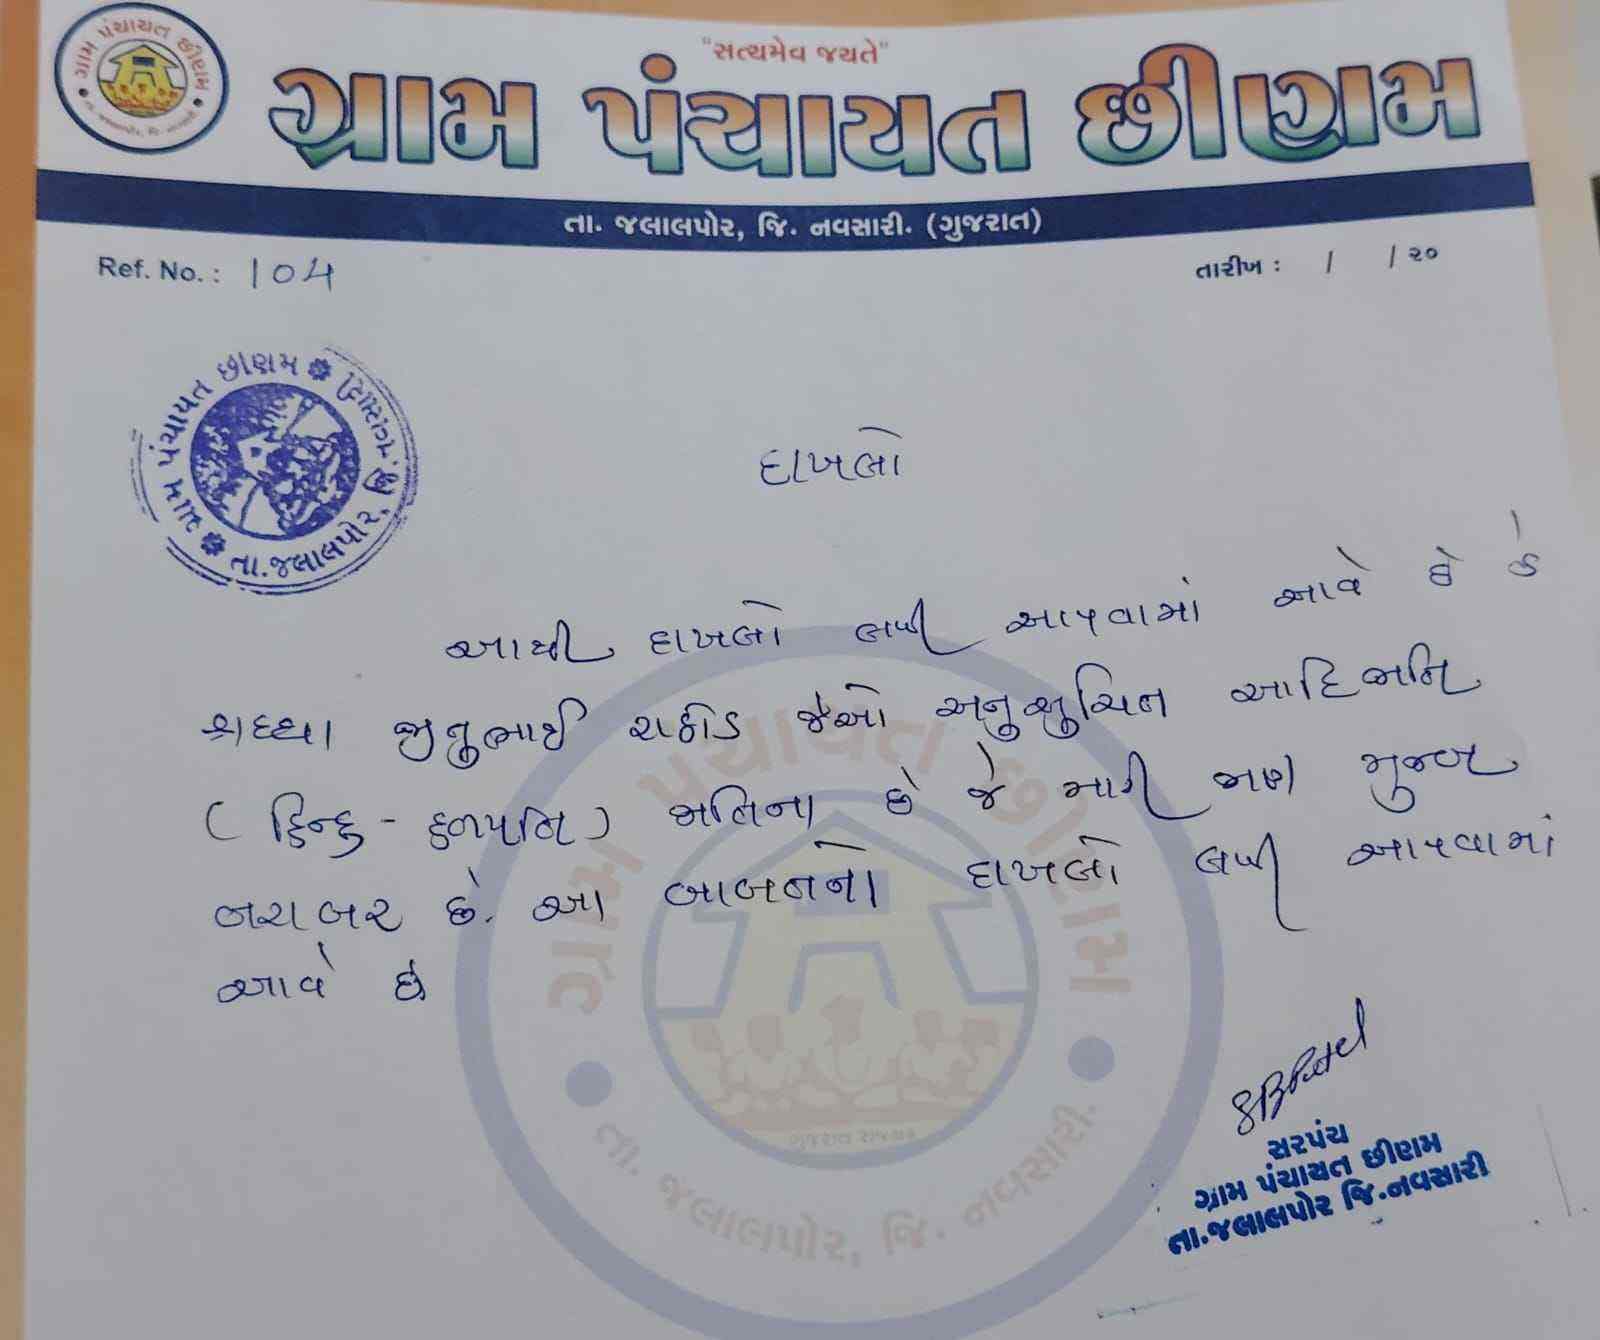 ગ્રામ પંચાયત છીણમ
"સત્યમેવ જયતે"
ગ્રામ પંચાયત છીણમ
તા. જલાલપોર, જિ. નવસારી. (ગુજરાત)
Ref. No. : 104
તારીખ : / / ૨૦
ગ્રામ પંચાયત છીણમ
તા.જલાલપોર, જિ.નવસારી
દાખલો
આથી દાખલો લખી આપવામાં આવે છે કે
શ્રધ્ધા જીતુભાઈ રાઠોડ જેઓ અનુસુચિત આદિજાતિ
( હિન્દુ - હળપતિ ) જાતિના છે જે મારી જાણ મુજબ
બરાબર છે. આ બાબતનો દાખલો લખી આપવામાં
આવે છે
ગ્રામ પંચાયત છીણમ
ગુજરાત રાજ્ય
તા. જલાલપોર, જિ. નવસારી.
SBPatel
સરપંચ
ગ્રામ પંચાયત છીણમ
તા.જલાલપોર જિ.નવસારી